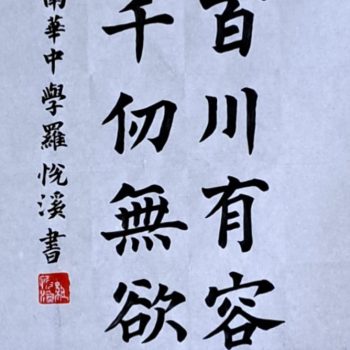 百川有容
千仞無欲
南華中學羅悅溪書